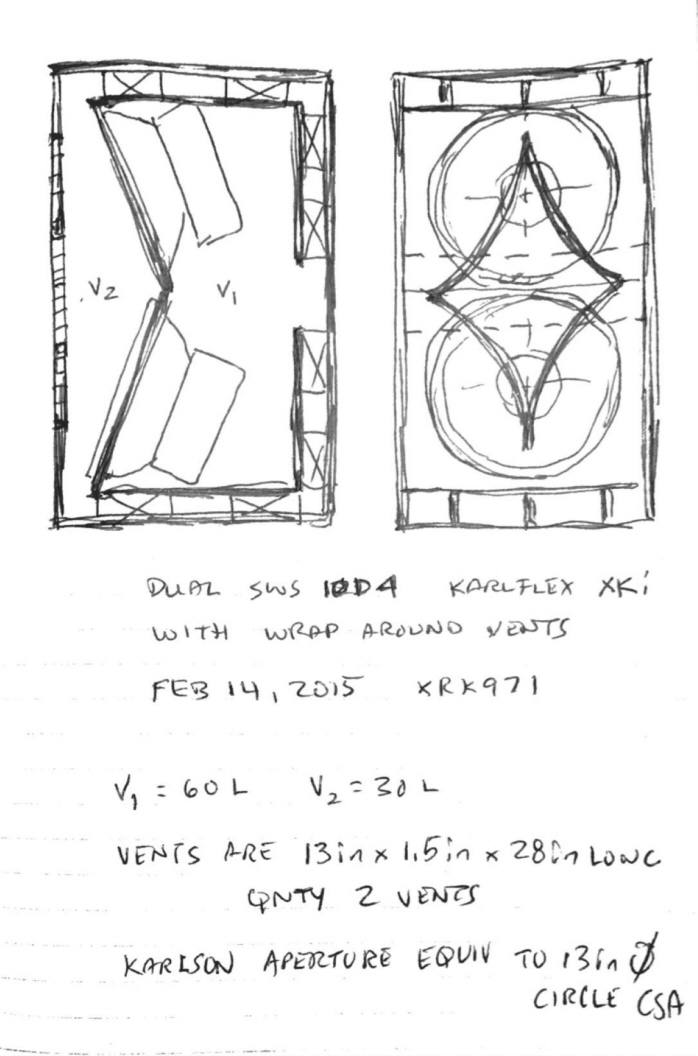 V2 V1
DUAL SWS 10D4 KARLFLEX XKi
WITH WRAP AROUND VENTS
FEB 14, 2015 XRK971
V1 = 60 L V2 = 30 L
VENTS ARE 13in x 1.5in x 28in LONG
QNTY 2 VENTS
KARLSON APERTURE EQUIV TO 13in Ø
CIRCLE CSA